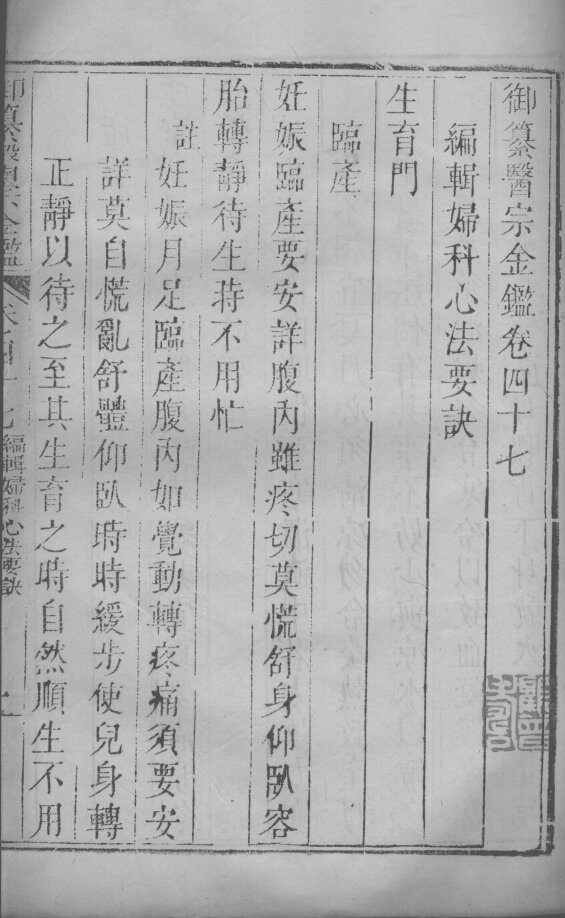 御纂醫宗金鑑卷四十七
編輯婦科心法要訣
生育門
臨產
妊娠臨產要安詳腹內雖疼切莫慌舒身仰臥容
胎轉靜待生時不用忙
註妊娠月足臨產腹內如覺動轉疼痛須要安
詳莫自慌亂舒體仰臥時時緩步使兒身轉
正靜以待之至其生育之時自然順生不用
御纂醫宗金鑑
編輯婦科心法要訣